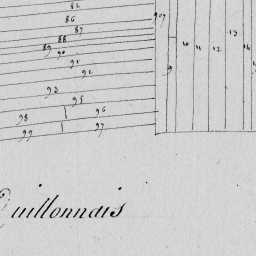 82
86
87
88
89 90
91
92
93
95
98 96
99 97
9
10 11 12 13 14
Quillonnais